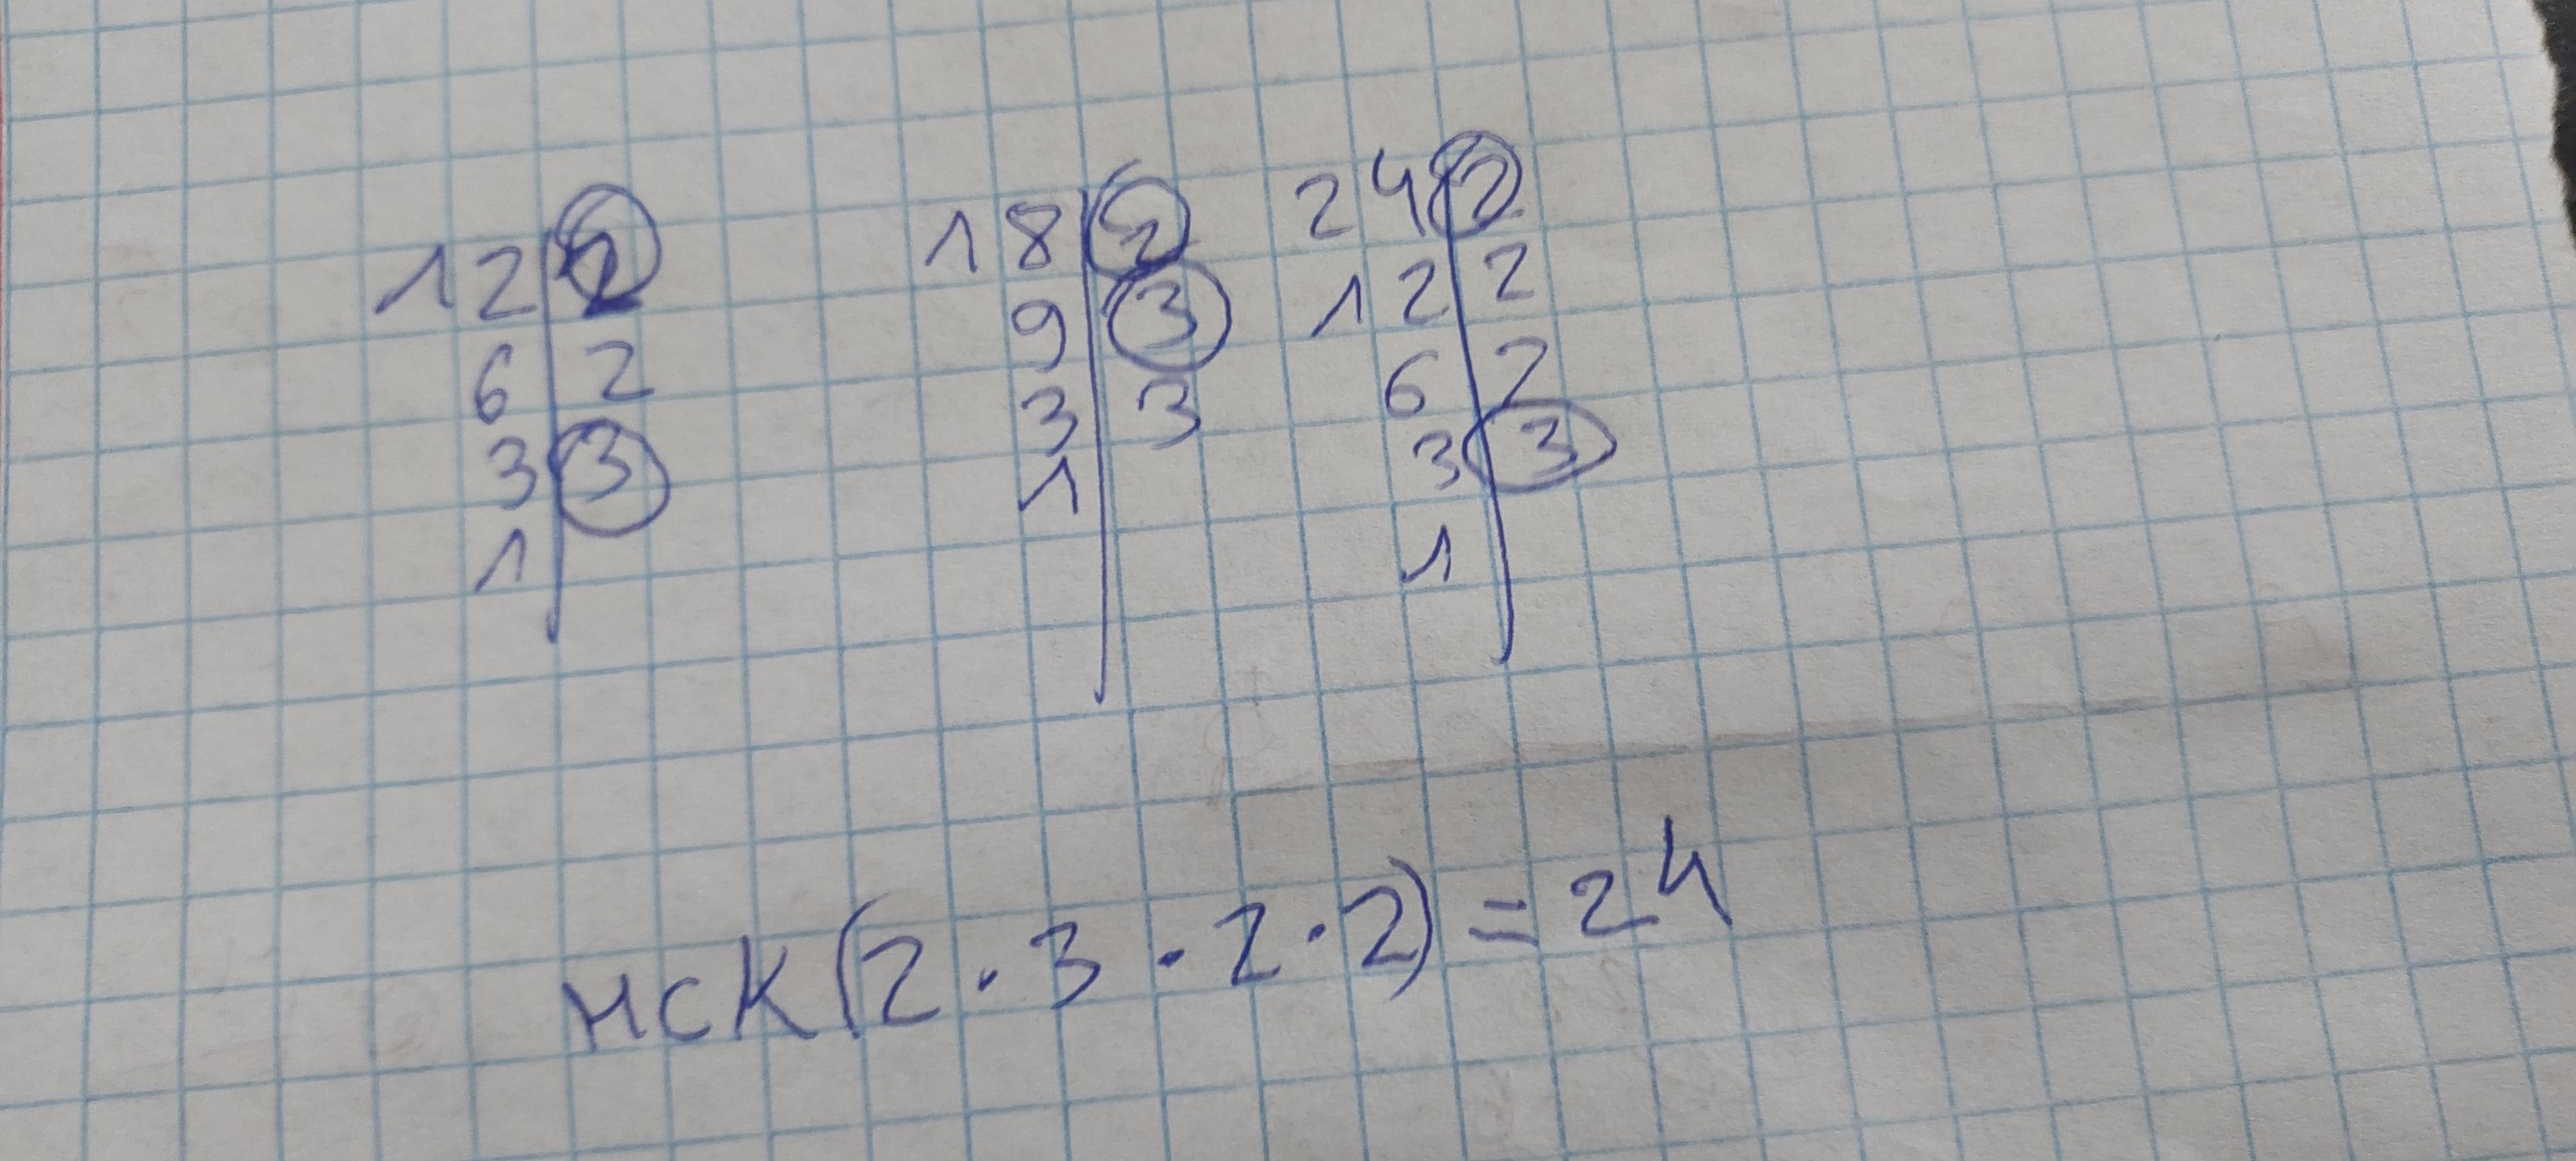 12 | 2
6 | 2
3 | 3
1 |
18 | 2
9 | 3
3 | 3
1 |
24 | 2
12 | 2
6 | 2
3 | 3
1 |
НСК(2·3·2·2)=24